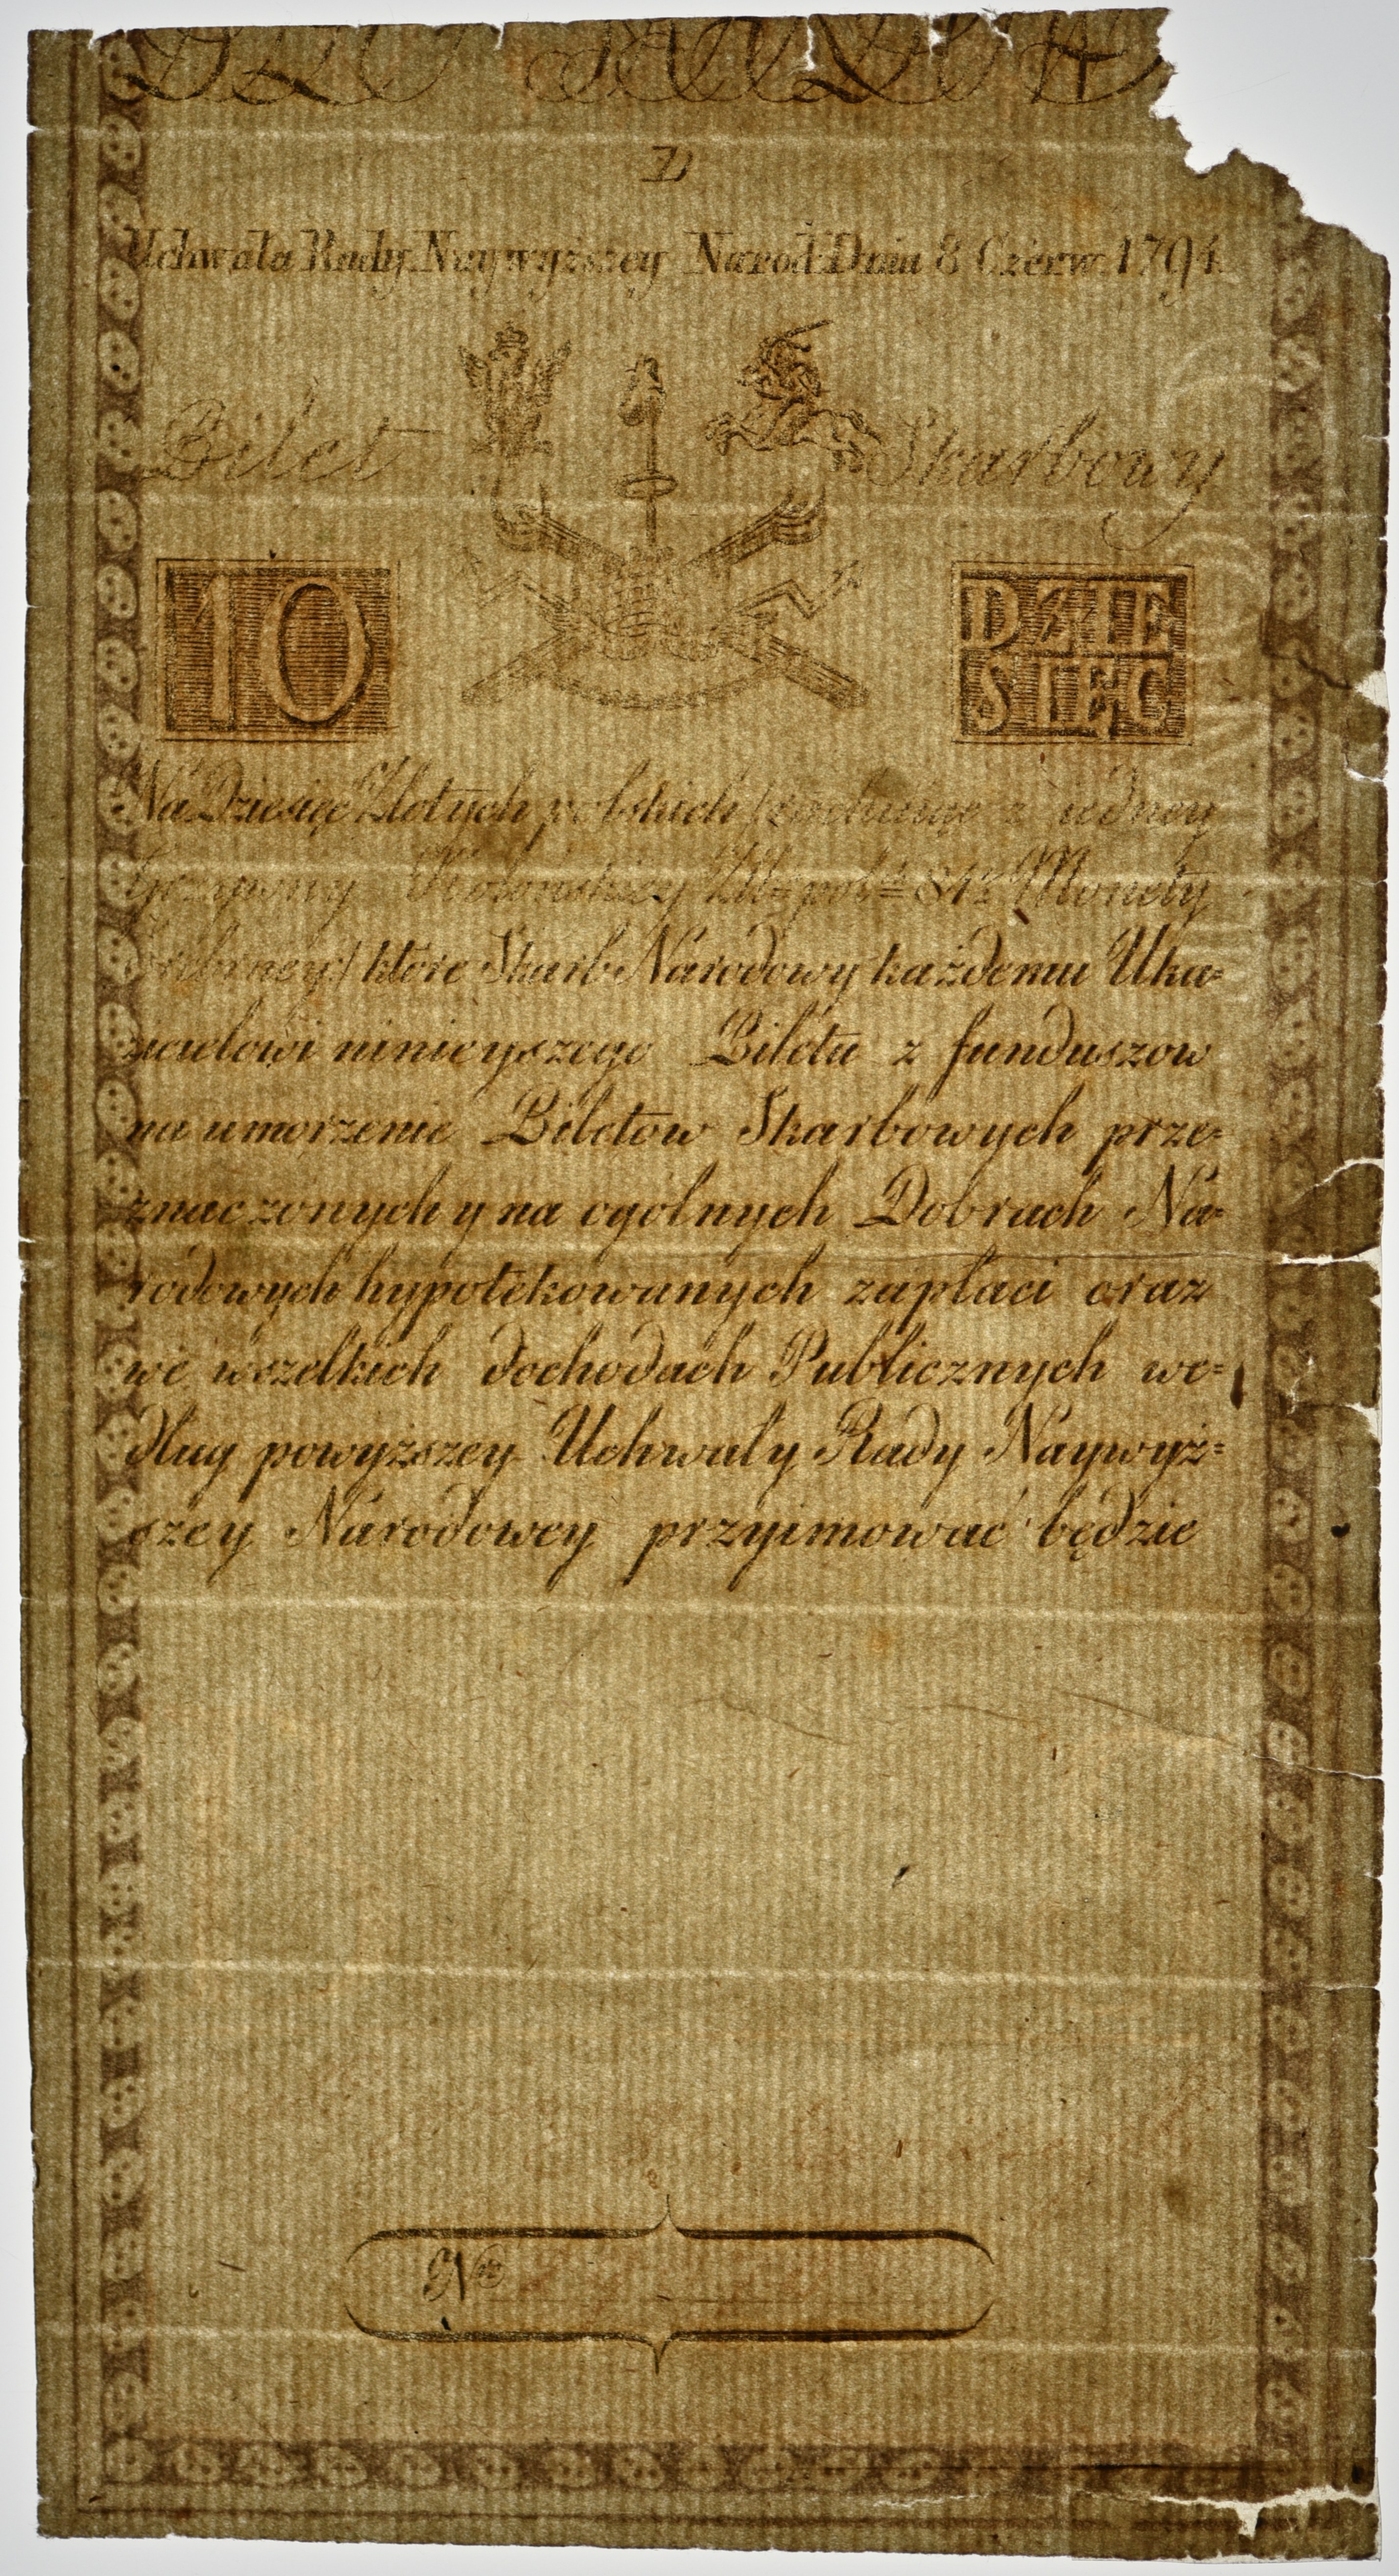 Z
Uchwała Rady Naywyższey Narod: Dnia 8 Czerw: 1794.
Bilet Skarbowy
10
DZIE
SIĘC
Na Dziesięć Złotych polskich (rachuiąc z iedney
Grzywny Kolońskiey Złł: pol: 84½ Monety
Srebrney) ktore Skarb Narodowy każdemu Uka=
zicielowi ninieyszego Biletu z funduszow
na umorzenie Biletow Skarbowych prze=
znaczonych y na ogolnych Dobrach Na=
rodowych hypotekowanych zapłaci oraz
we wszelkich dochodach Publicznych we=
dług powyższey Uchwały Rady Naywyż=
szey Narodowey przyimować będzie
Nro